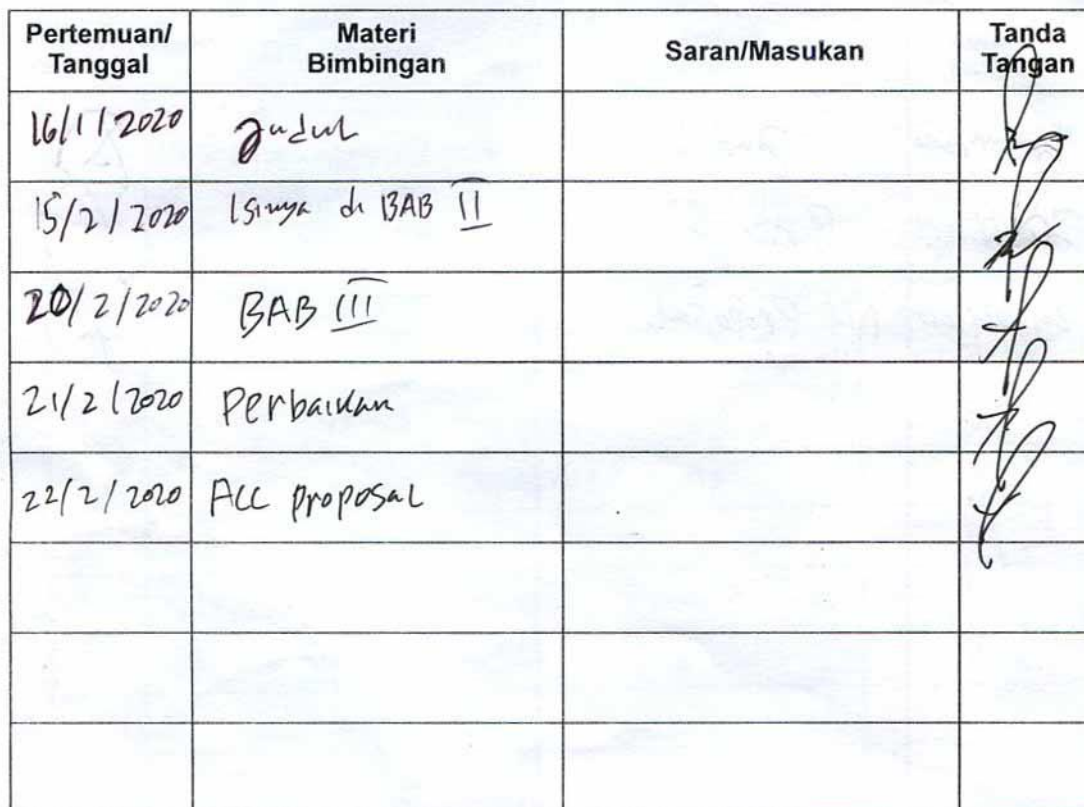 Pertemuan/ Tanggal Materi Bimbingan Saran/Masukan Tanda Tangan
16/1/2020 Judul
15/2/2020 Isinya di BAB II
20/2/2020 BAB III
21/2/2020 Perbaikan
22/2/2020 ACC proposal